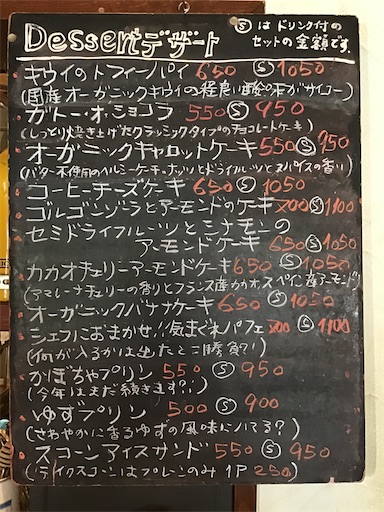 Dessert デザート
Ⓢ は ドリンク付の
セットの金額です。
キウイのトフィーパイ 650 Ⓢ 1050
(国産オーガニックキウイの程良い酸味がサイコー)
ガトー・オ・ショコラ 550 Ⓢ 950
(しっとり焼き上げたクラッシックタイプのチョコレートケーキ)
オーガニックキャロットケーキ 550 Ⓢ 950
(バター不使用のヘルシーケーキ。ナッツとドライフルーツとスパイスの香り)
コーヒーチーズケーキ 650 Ⓢ 1050
ゴルゴンゾーラとアーモンドのケーキ 700 Ⓢ 1100
セミドライフルーツとシナモンの
アーモンドケーキ 650 Ⓢ 1050
カカオチェリーアーモンドケーキ 650 Ⓢ 1050
(アマレーナチェリーの香りとフランス産カカオ。スペイン産アーモンド)
オーガニックバナナケーキ 650 Ⓢ 1050
シェフにおまかせ!!気まぐれパフェ 700 Ⓢ 1100
(何が入るかは出たとこ勝負?!)
かぼちゃプリン 550 Ⓢ 950
(今年はまだ続きます?!)
ゆずプリン 500 Ⓢ 900
(さわやかに香るゆずの風味にハマる?)
スコーンアイスサンド 550 Ⓢ 950
(テイクスコーンはプレーンのみ 1P 250)